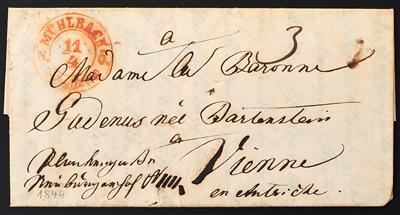 MÜHLBACH
11
4
3
a
Madame la Baronne
Gudenus née Bartenstein
a
Vienne
en autriche.
1844